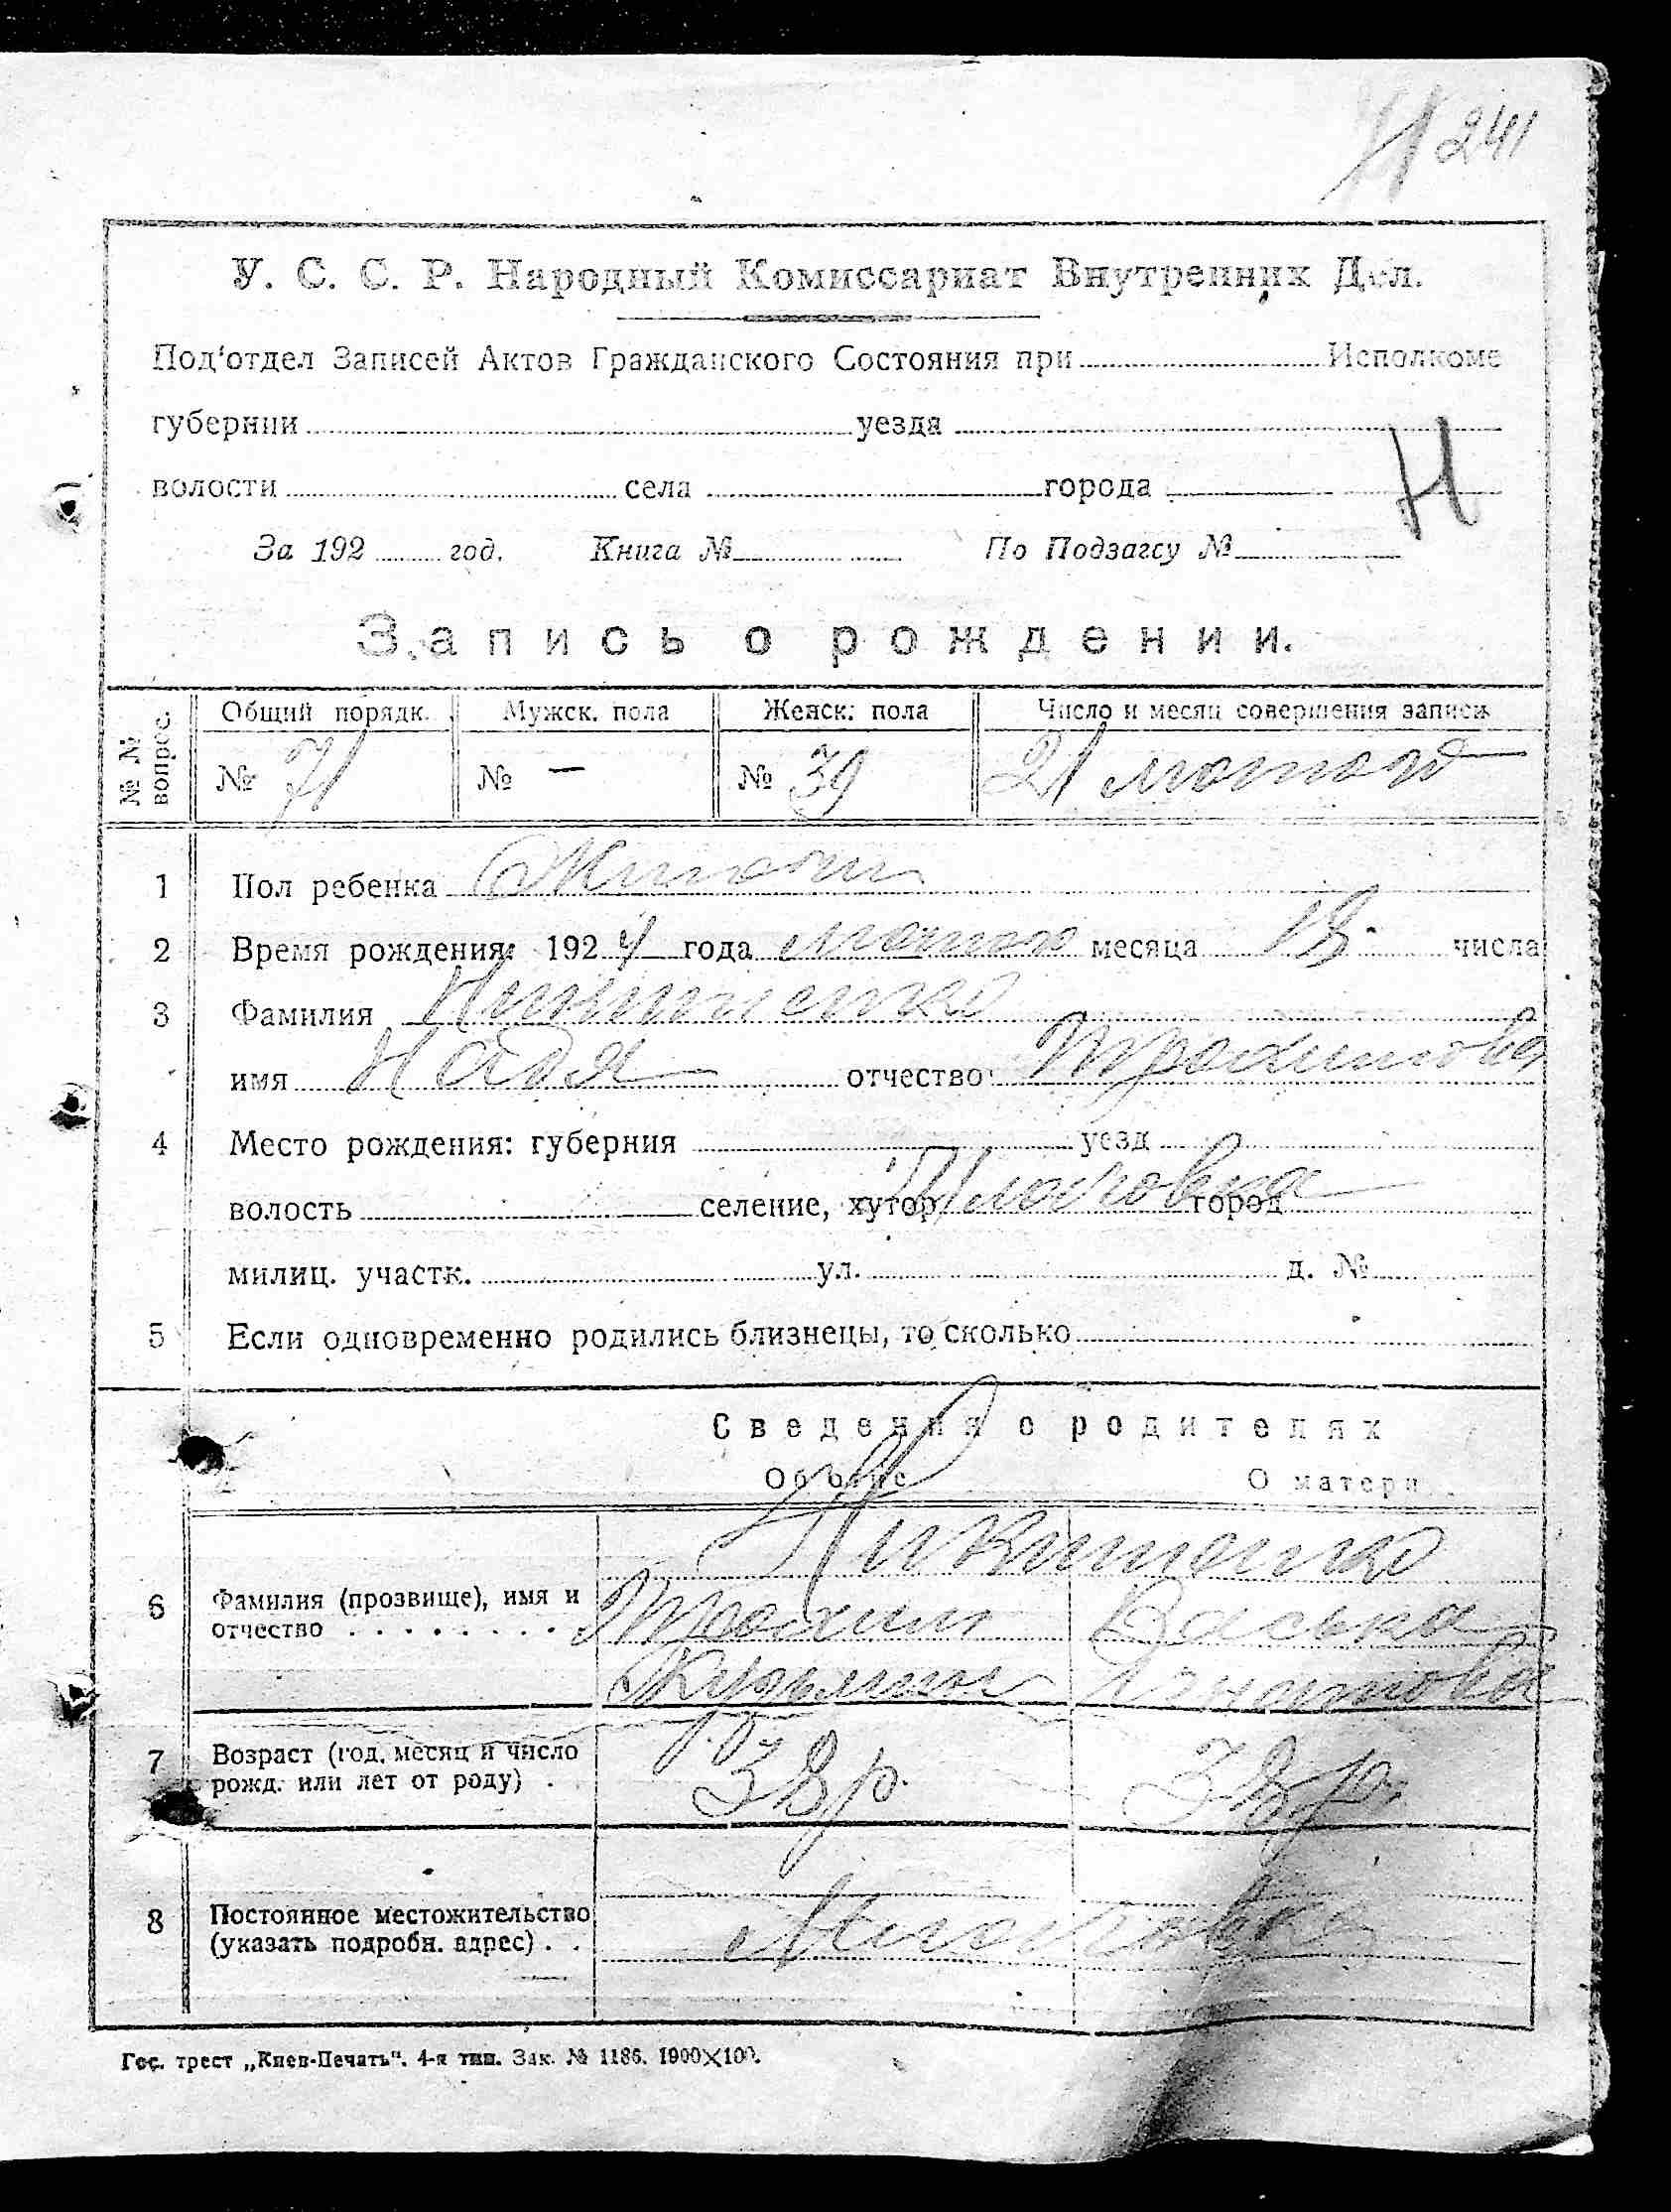 71 241
У. С. С. Р. Народный Комиссариат Внутренних Дел.
Под'отдел Записей Актов Гражданского Состояния при Исполкоме
губернии уезда
волости села города
Н
За 192 год. Книга № По Подзагсу №
Запись о рождении.
№ № вопрос. Общий порядк. Мужск. пола Женск. пола Число и месяц совершения записи
№ 71 № — № 39 21 лютого
1 Пол ребенка
2 Время рождения: 1924 года лютого месяца 18 числа
3 Фамилия Никитенко
имя Надя отчество Трохимова
4 Место рождения: губерния уезд
волость селение, хутор город
милиц. участк. ул. д. №
5 Если одновременно родились близнецы, то сколько
Сведения о родителях
Об отце О матери
Никитенко
6 Фамилия (прозвище), имя и Трохим Васька
отчество Игнатова
7 Возраст (год, месяц и число
рожд. или лет от роду) 38 р. 38 р.
8 Постоянное местожительство
(указать подробн. адрес)
Гос. трест „Киев-Печать“. 4-я тип. Зак. № 1186. 1000×100.